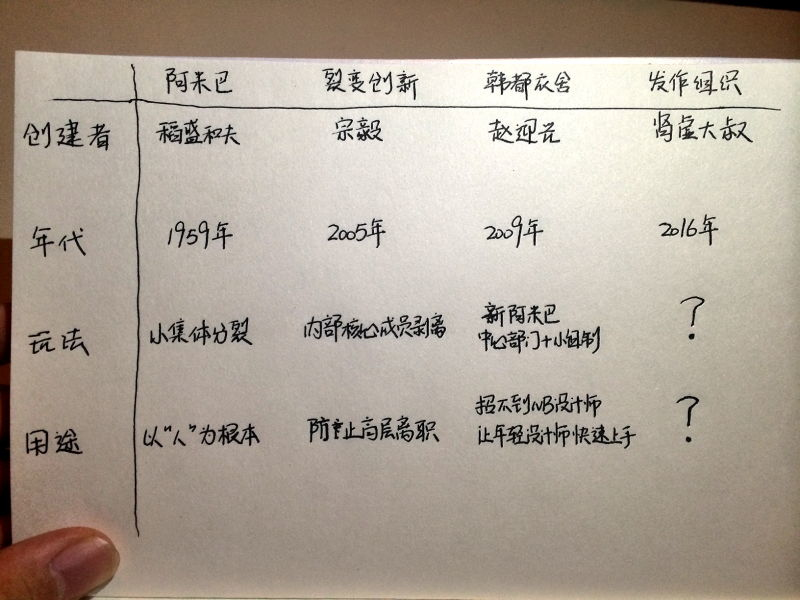 阿米巴 裂变创新 韩都衣舍 发作组织
创建者 稻盛和夫 宗毅 赵迎光 肾虚大叔
年代 1959年 2005年 2009年 2016年
玩法 小集体分裂 内部核心成员剥离 新阿米巴 ?
中心部门+小组制
用途 以“人”为根本 防止高层离职 招不到NB设计师 ?
让年轻设计师快速上手